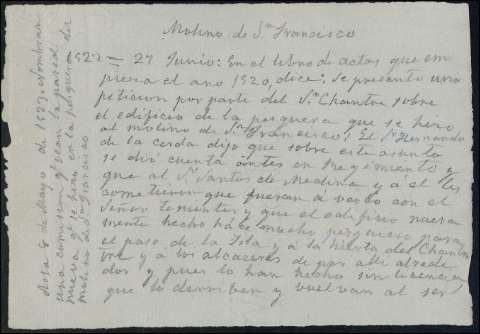 Molino de Sn Francisco
1522 = 27 Junio: En el libro de actas que em
pieza el año 1520, dice: Se presento una
peticion por parte del Sr Chantre sobre
el edificio de la pesquera que se hizo
al molino de Sn Francisco: El Sr Hernando
de la Cerda dijo que sobre este asunto
se dió cuenta antes en regimiento y
que al Sr Santos de Medina y a el les
cometieron que fueran a verlo con el
Señor teniente, y que el edificio nueva
mente hecho hace mucho perjuicio para
el paso de la Isla y á la huerta del Chan
tre y a los alcaceres de por alli alrede
dor y pues lo han hecho sin licencia
que lo derriben y vuelvan al ser
Acta 6 de Mayo de 1523. Nombran
una comision qe vean la pared
nueva qe se hizo en la pesquera del
molino de Sn Francisco